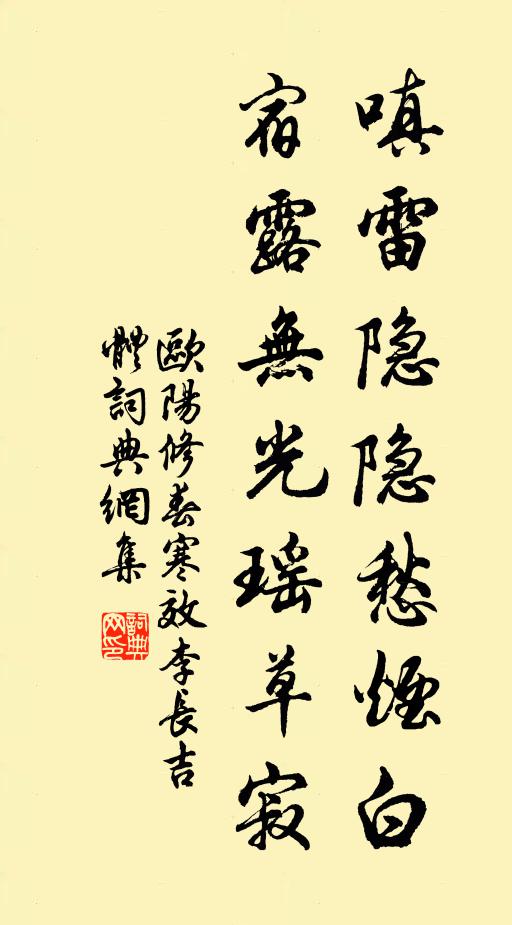 嗔雷隐隐愁煙白
宿露無光瑶草寂
歐陽修春寒效李長吉
體詞典網集
詞典
网印